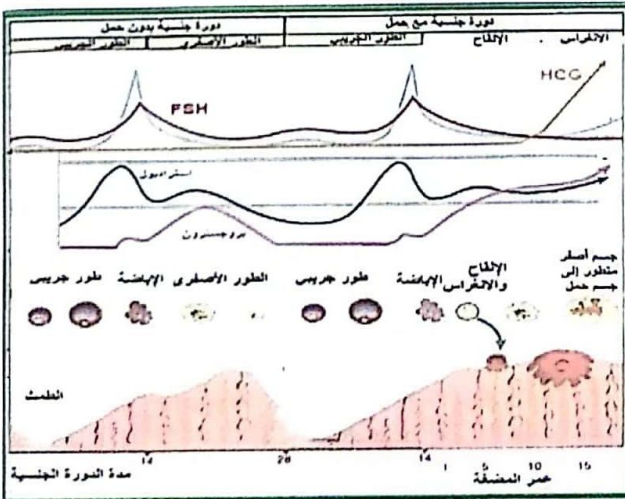 دورة جنسية بدون حمل
دورة جنسية مع حمل
الطور الجريبي
الطور الأصفري
الطور الجريبي
الإلقاح
الانغراس
FSH
HCG
استراديول
بروجسترون
طور جريبي
الإباضة
الطور الأصفري
طور جريبي
الإباضة
الإلقاح
والانغراس
جسم أصفر
متطور إلى
جسم حمل
الطمث
14
28
14
1
5
10
15
مدة الدورة الجنسية
عمر المضغة